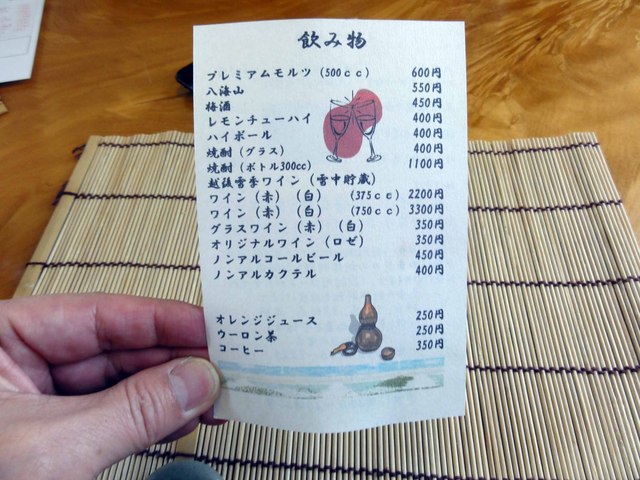 飲み物
プレミアムモルツ(500cc) 600円
八海山 550円
梅酒 450円
レモンチューハイ 400円
ハイボール 400円
焼酎(グラス) 400円
焼酎(ボトル300cc) 1100円
越後雪季ワイン(雪中貯蔵)
ワイン(赤)(白) (375cc) 2200円
ワイン(赤)(白) (750cc) 3300円
グラスワイン(赤)(白) 350円
オリジナルワイン(ロゼ) 350円
ノンアルコールビール 450円
ノンアルカクテル 400円
オレンジジュース 250円
ウーロン茶 250円
コーヒー 350円